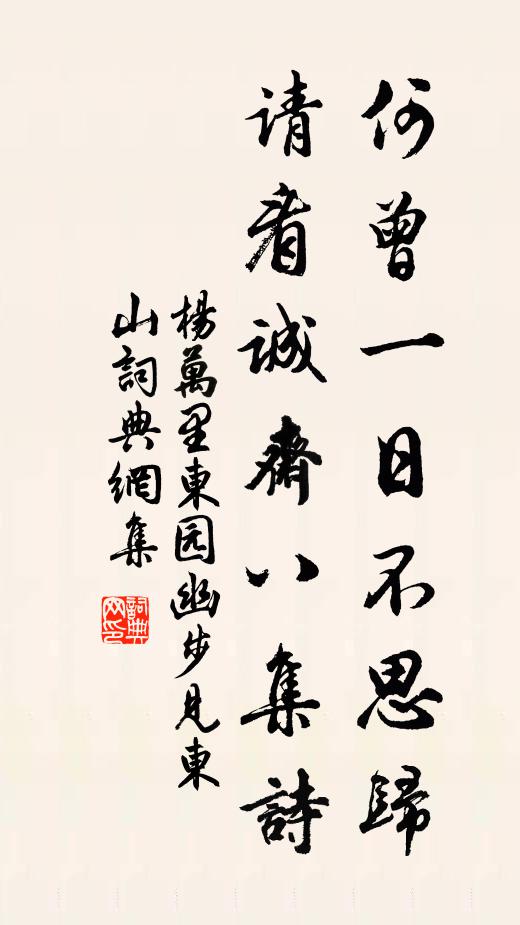 何曾一日不思歸
请看誠齋八集詩
楊萬里東园幽步見東
山詞典網集
詞典
网印